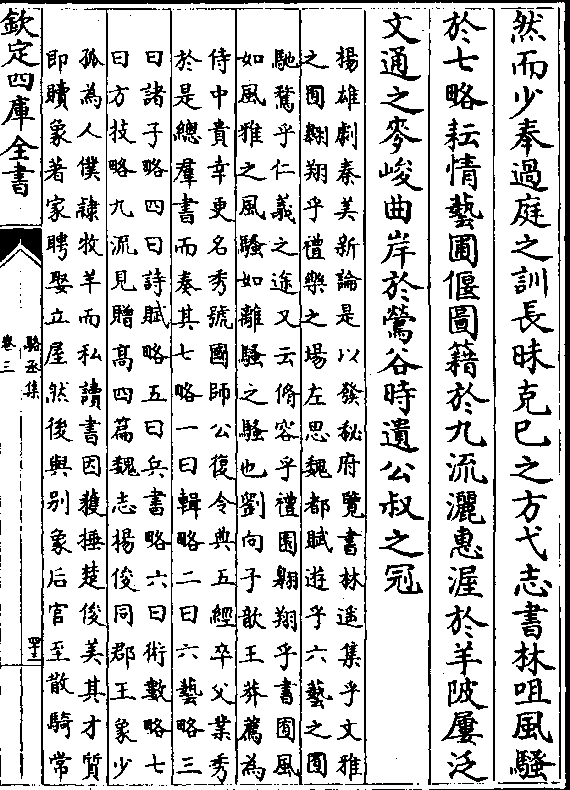 然而少奉過庭之訓長昧克已之方弋志書林咀風騷
於七略耘情藝圃偃圖籍於九流灑惠渥於羊陂屢泛
文通之麥峻曲岸於鶯谷時遺公叔之冠
揚雄劇秦美新論是以發秘府覽書林遥集乎文雅
之囿翱翔乎禮樂之場左思魏都賦遊乎六藝之囿
馳騖乎仁義之途又云脩容乎禮園翱翔乎書囿風
如風雅之風騷如離騷之騷也劉向子歆王莽薦為
侍中貴幸更名秀號國師公復令典五經卒父業秀
於是總羣書而奏其七略一曰輯略二曰六藝略三
曰諸子略四曰詩賦略五曰兵書略六曰術數略七
曰方技略九流見贈髙四篇魏志楊俊同郡王象少
孤為人僕隷牧羊而私讀書因獲捶楚俊美其才質
即贖象著家聘娶立屋然後與别象后官至散騎常
欽定四庫全書
駱丞集
卷三